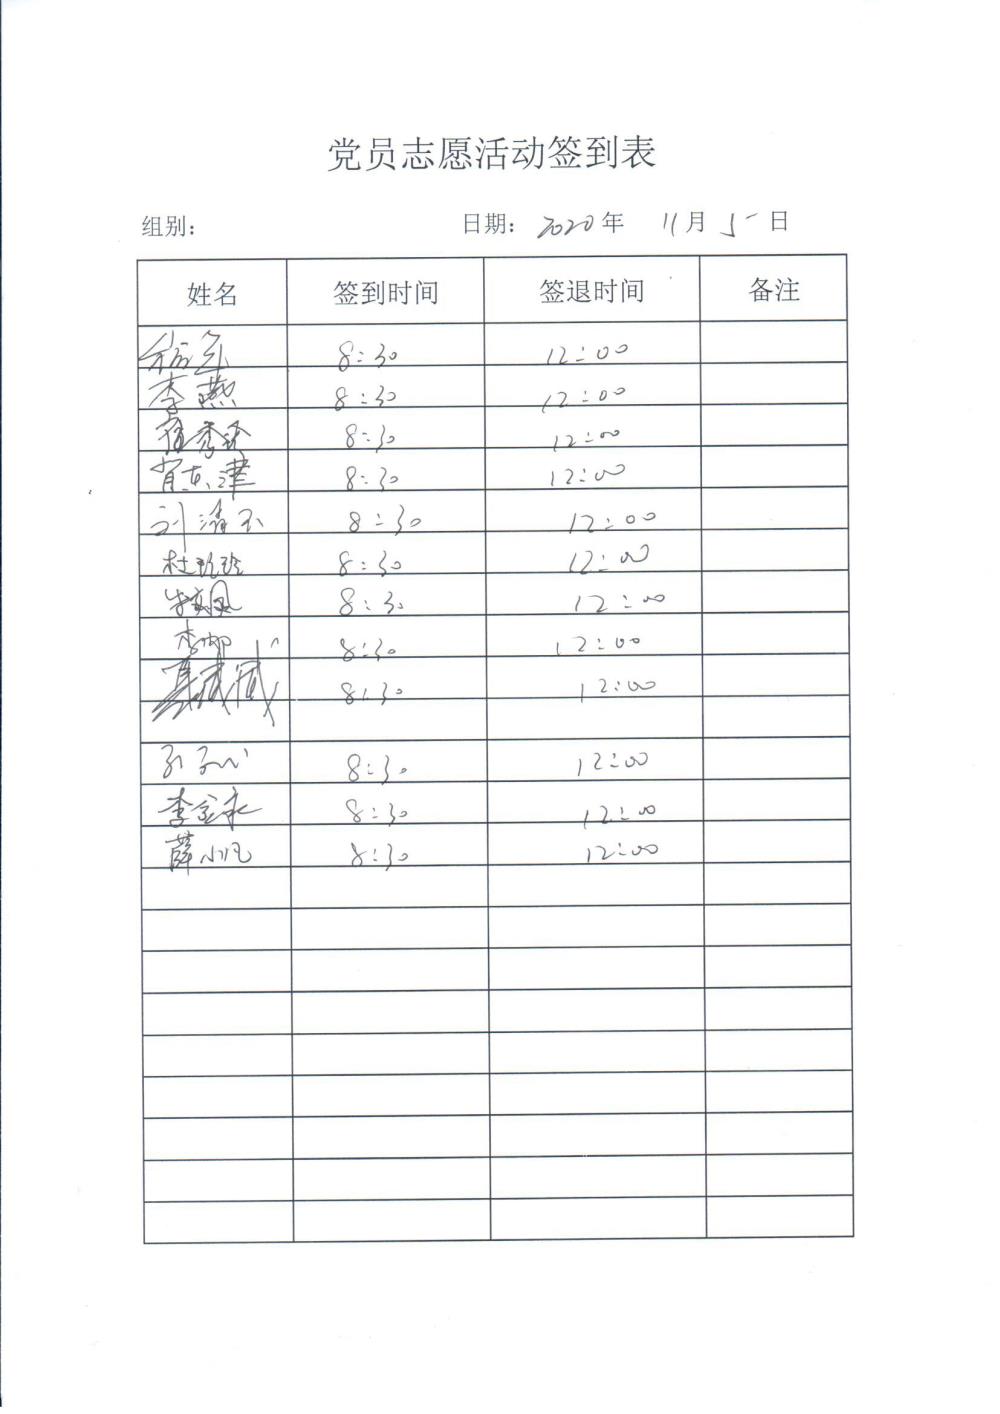 党员志愿活动签到表
组别： 日期： 2020年 11月 5日
姓名 签到时间 签退时间 备注
8:30 12:00
李燕 8:30 12:00
崔秀珍 8:30 12:00
肖东津 8:30 12:00
刘清玉 8:30 12:00
杜玲 8:30 12:00
8:30 12:00
李娜 8:30 12:00
8:30 12:00
8:30 12:00
李金永 8:30 12:00
薛小凡 8:30 12:00